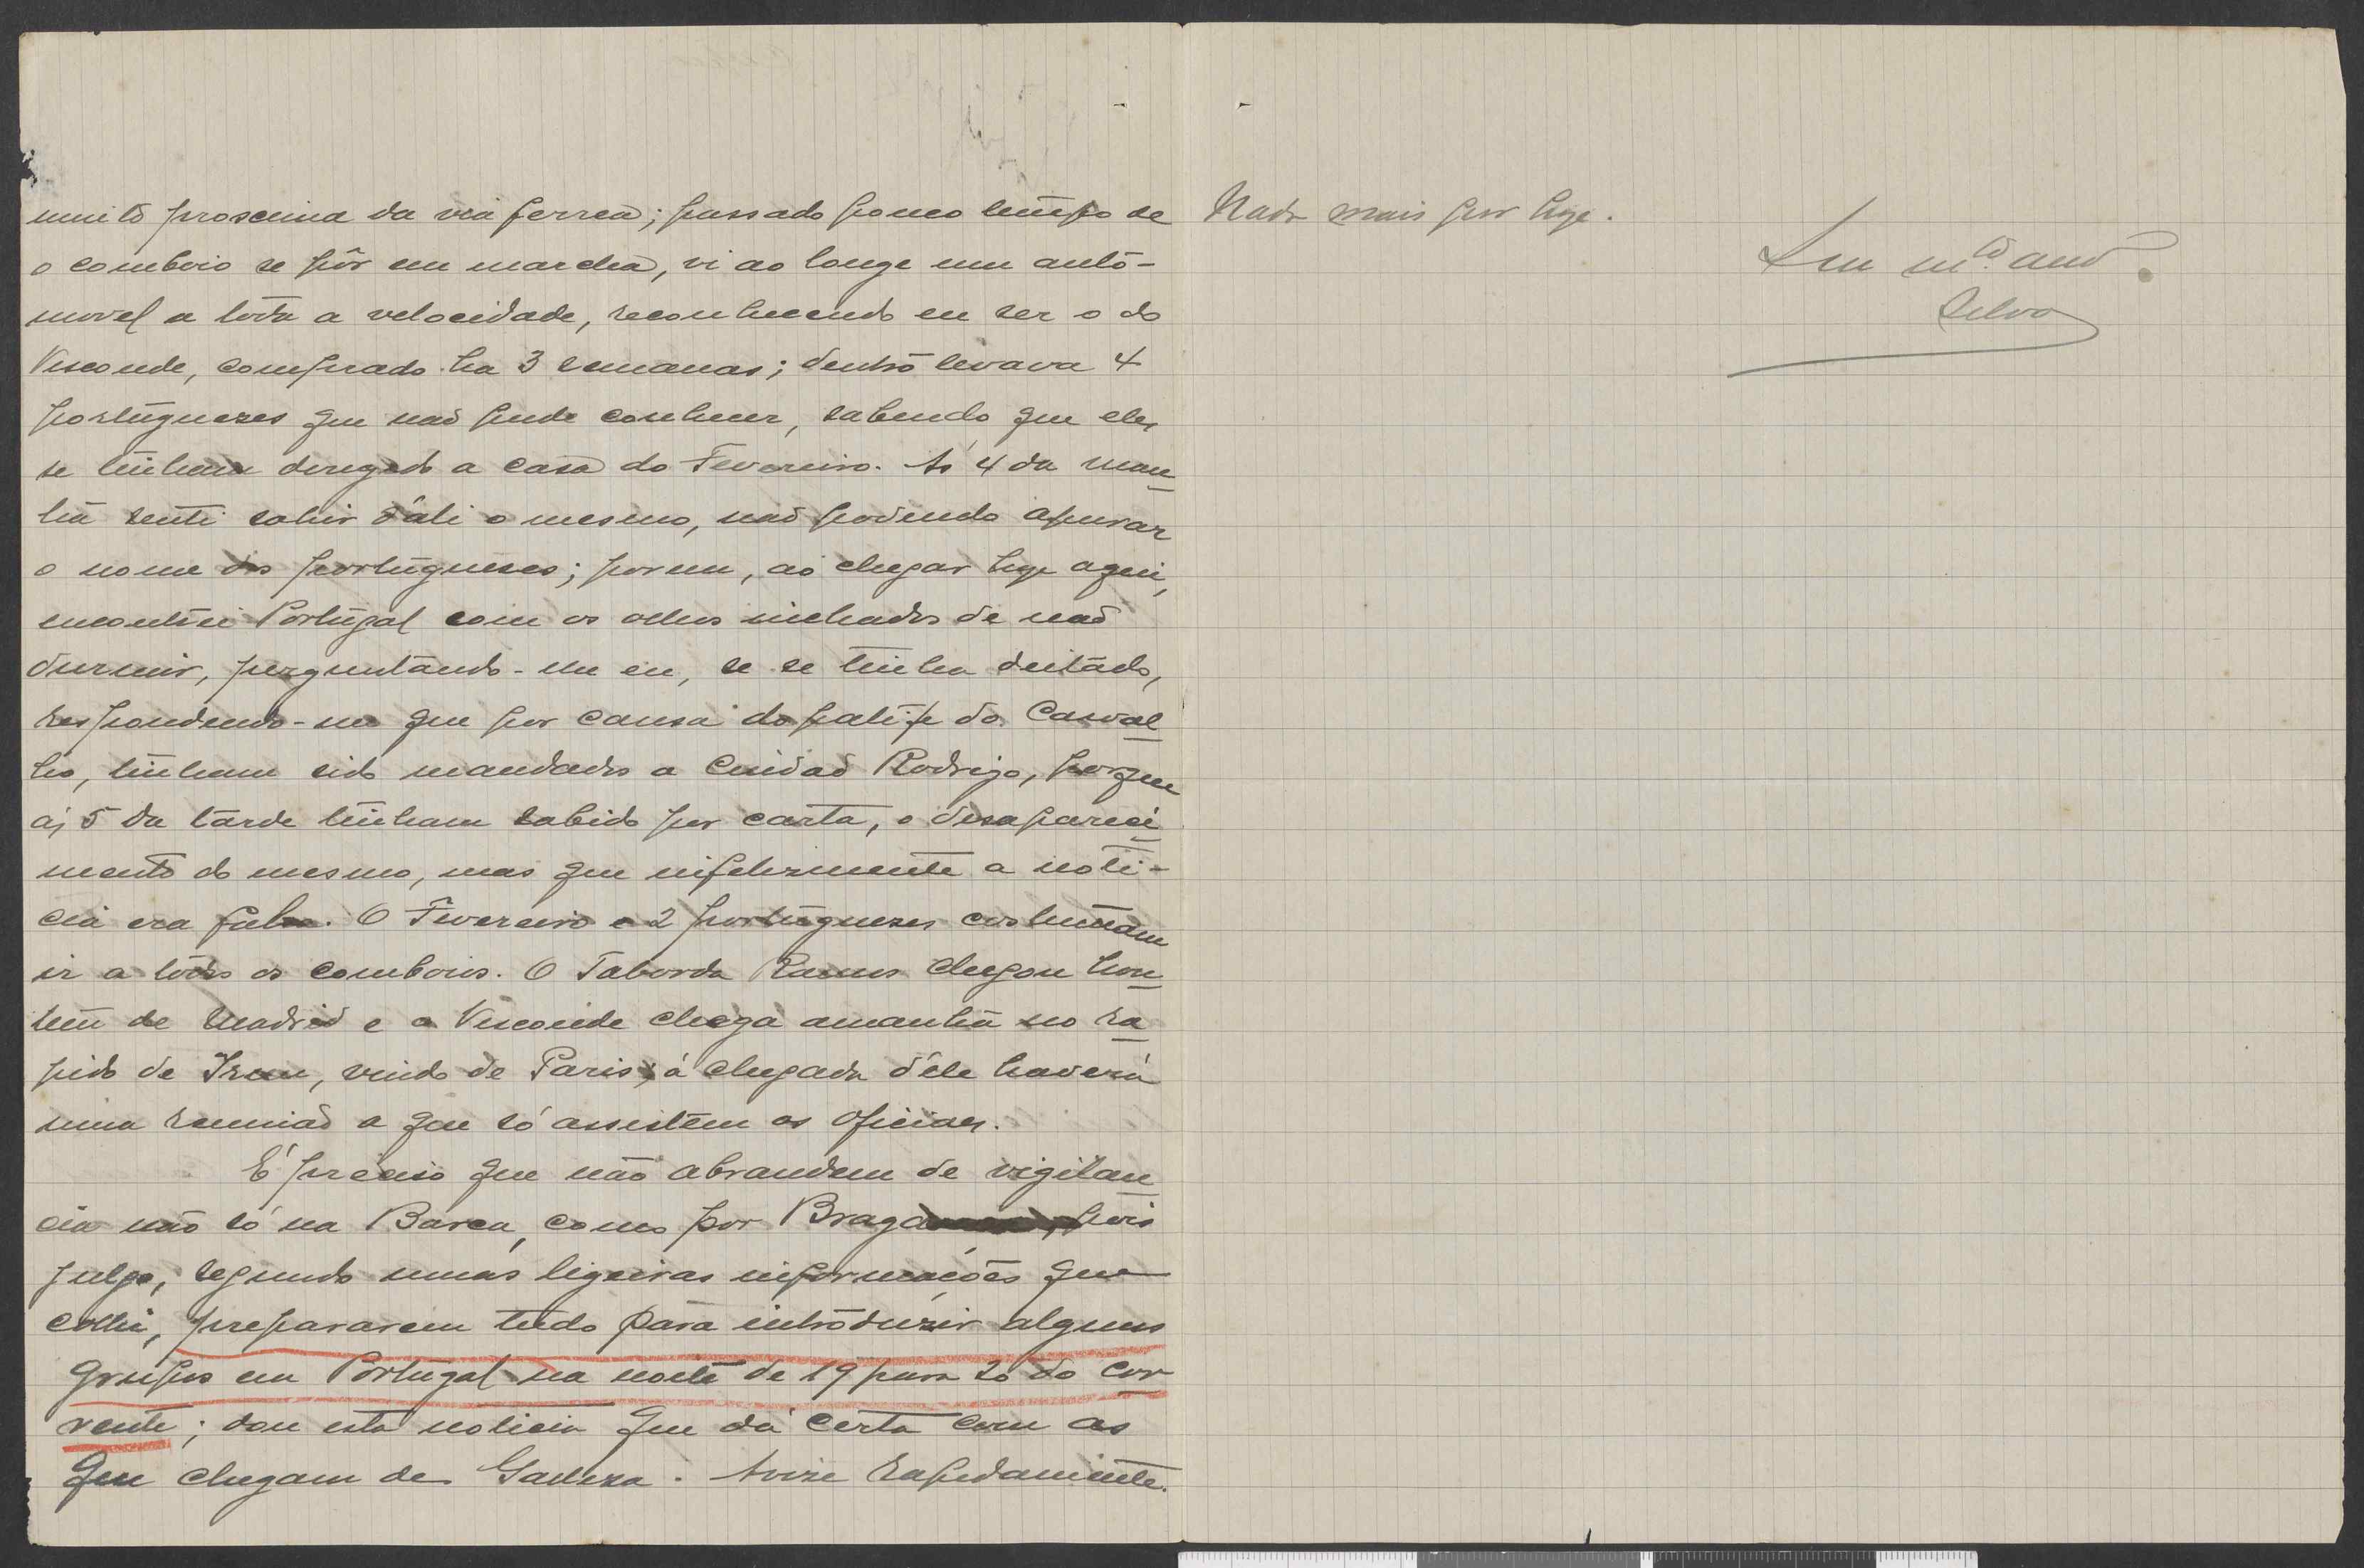 muito proscima da via ferrea; passado pouco tempo de
o comboio se pôr em marcha, vi ao longe um auto-
movel a toda a velocidade, reconhecendo eu ser o do
Visconde, comprado ha 3 semanas; dentro levava 4
portuguezes que não pude conhecer, sabendo que eles
se tinham dirigido a casa do Fevereiro. Ás 4 da man
hã senti sahir d'ali o mesmo, não podendo apurar
o nome dos portugueses; porem, ao chegar hoje aqui,
encontrei Portugal com os olhos inchados de não
durmir, perguntando-lhe eu, se se tinha deitado,
respondendo-me que por causa do patife do Carval
ho, tinham sido mandados a Cuidad Rodrigo, porque
ás 5 da tarde tinham sabido por carta, o desapareci
mento do mesmo, mas que infelizmente a noti-
cia era falsa. O Fevereiro e 2 portuguezes costumam
ir a todos os comboios. O Taborda Ramos chegou hon
tem de Madrid e o Visconde chega amanhã no ra
pido de Irun, vindo de Paris; á chegada d'ele haverá
uma reunião a que só assistem os oficiaes.
É preciso que não abrandem de vigilan
cia não só na Barca, como por Braga, pois
julgo, segundo umas ligeiras informações que
colhi, prepararem tudo para introduzir alguns
grupos em Portugal na noite de 19 para 20 do cor
rente; dou esta noticia que dá certa com as
que chegam de Galiza. Avise rapidamente.
Nada mais por hoje.
Seu mto amo
Silva